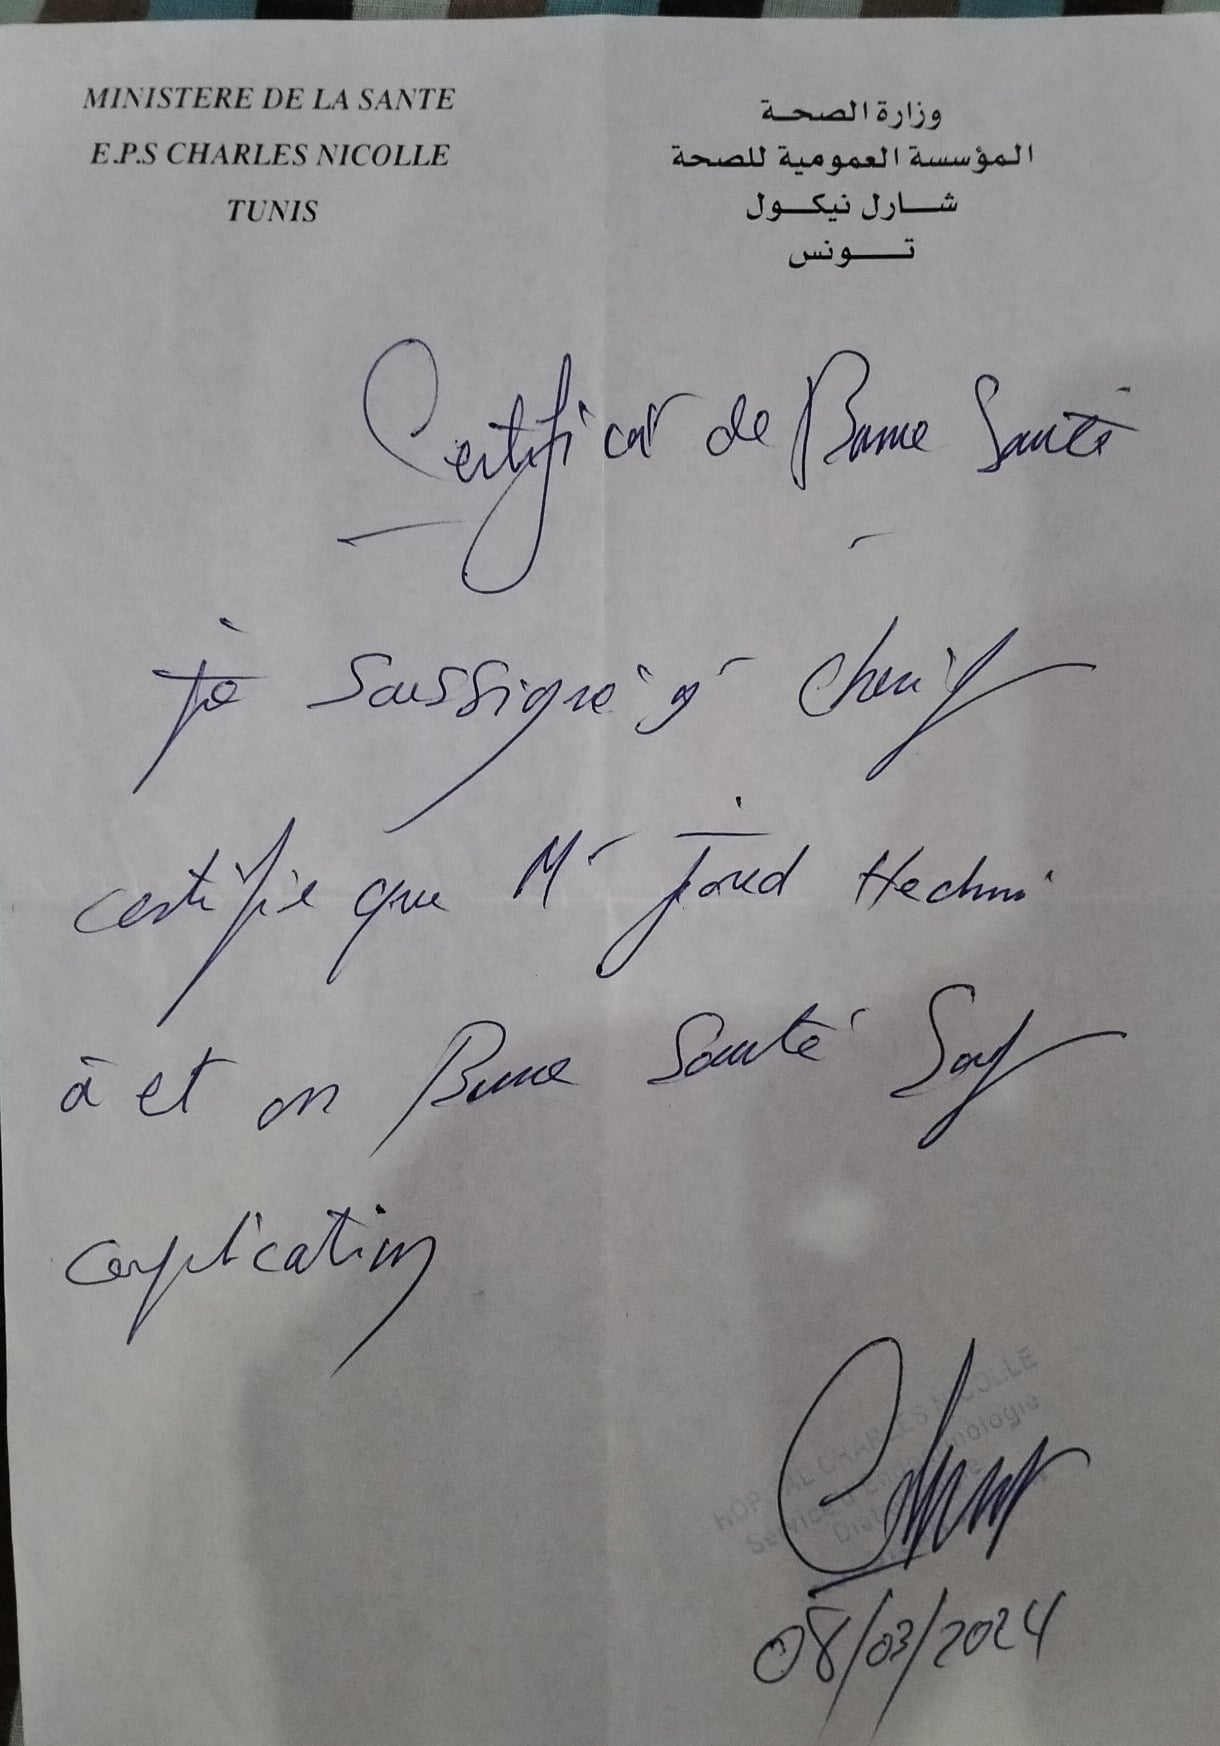 MINISTERE DE LA SANTE
E.P.S CHARLES NICOLLE
TUNIS
وزارة الصحة
المؤسسة العمومية للصحة
شارل نيكول
تونس
Certificat de Bonne Santé
je soussigné Cherif
certifie que Mr Jaoued Hechmi
à et en Bonne Santé Sauf
complication
HOPITAL CHARLES NICOLLE
Service d'Endocrinologie
08/03/2024